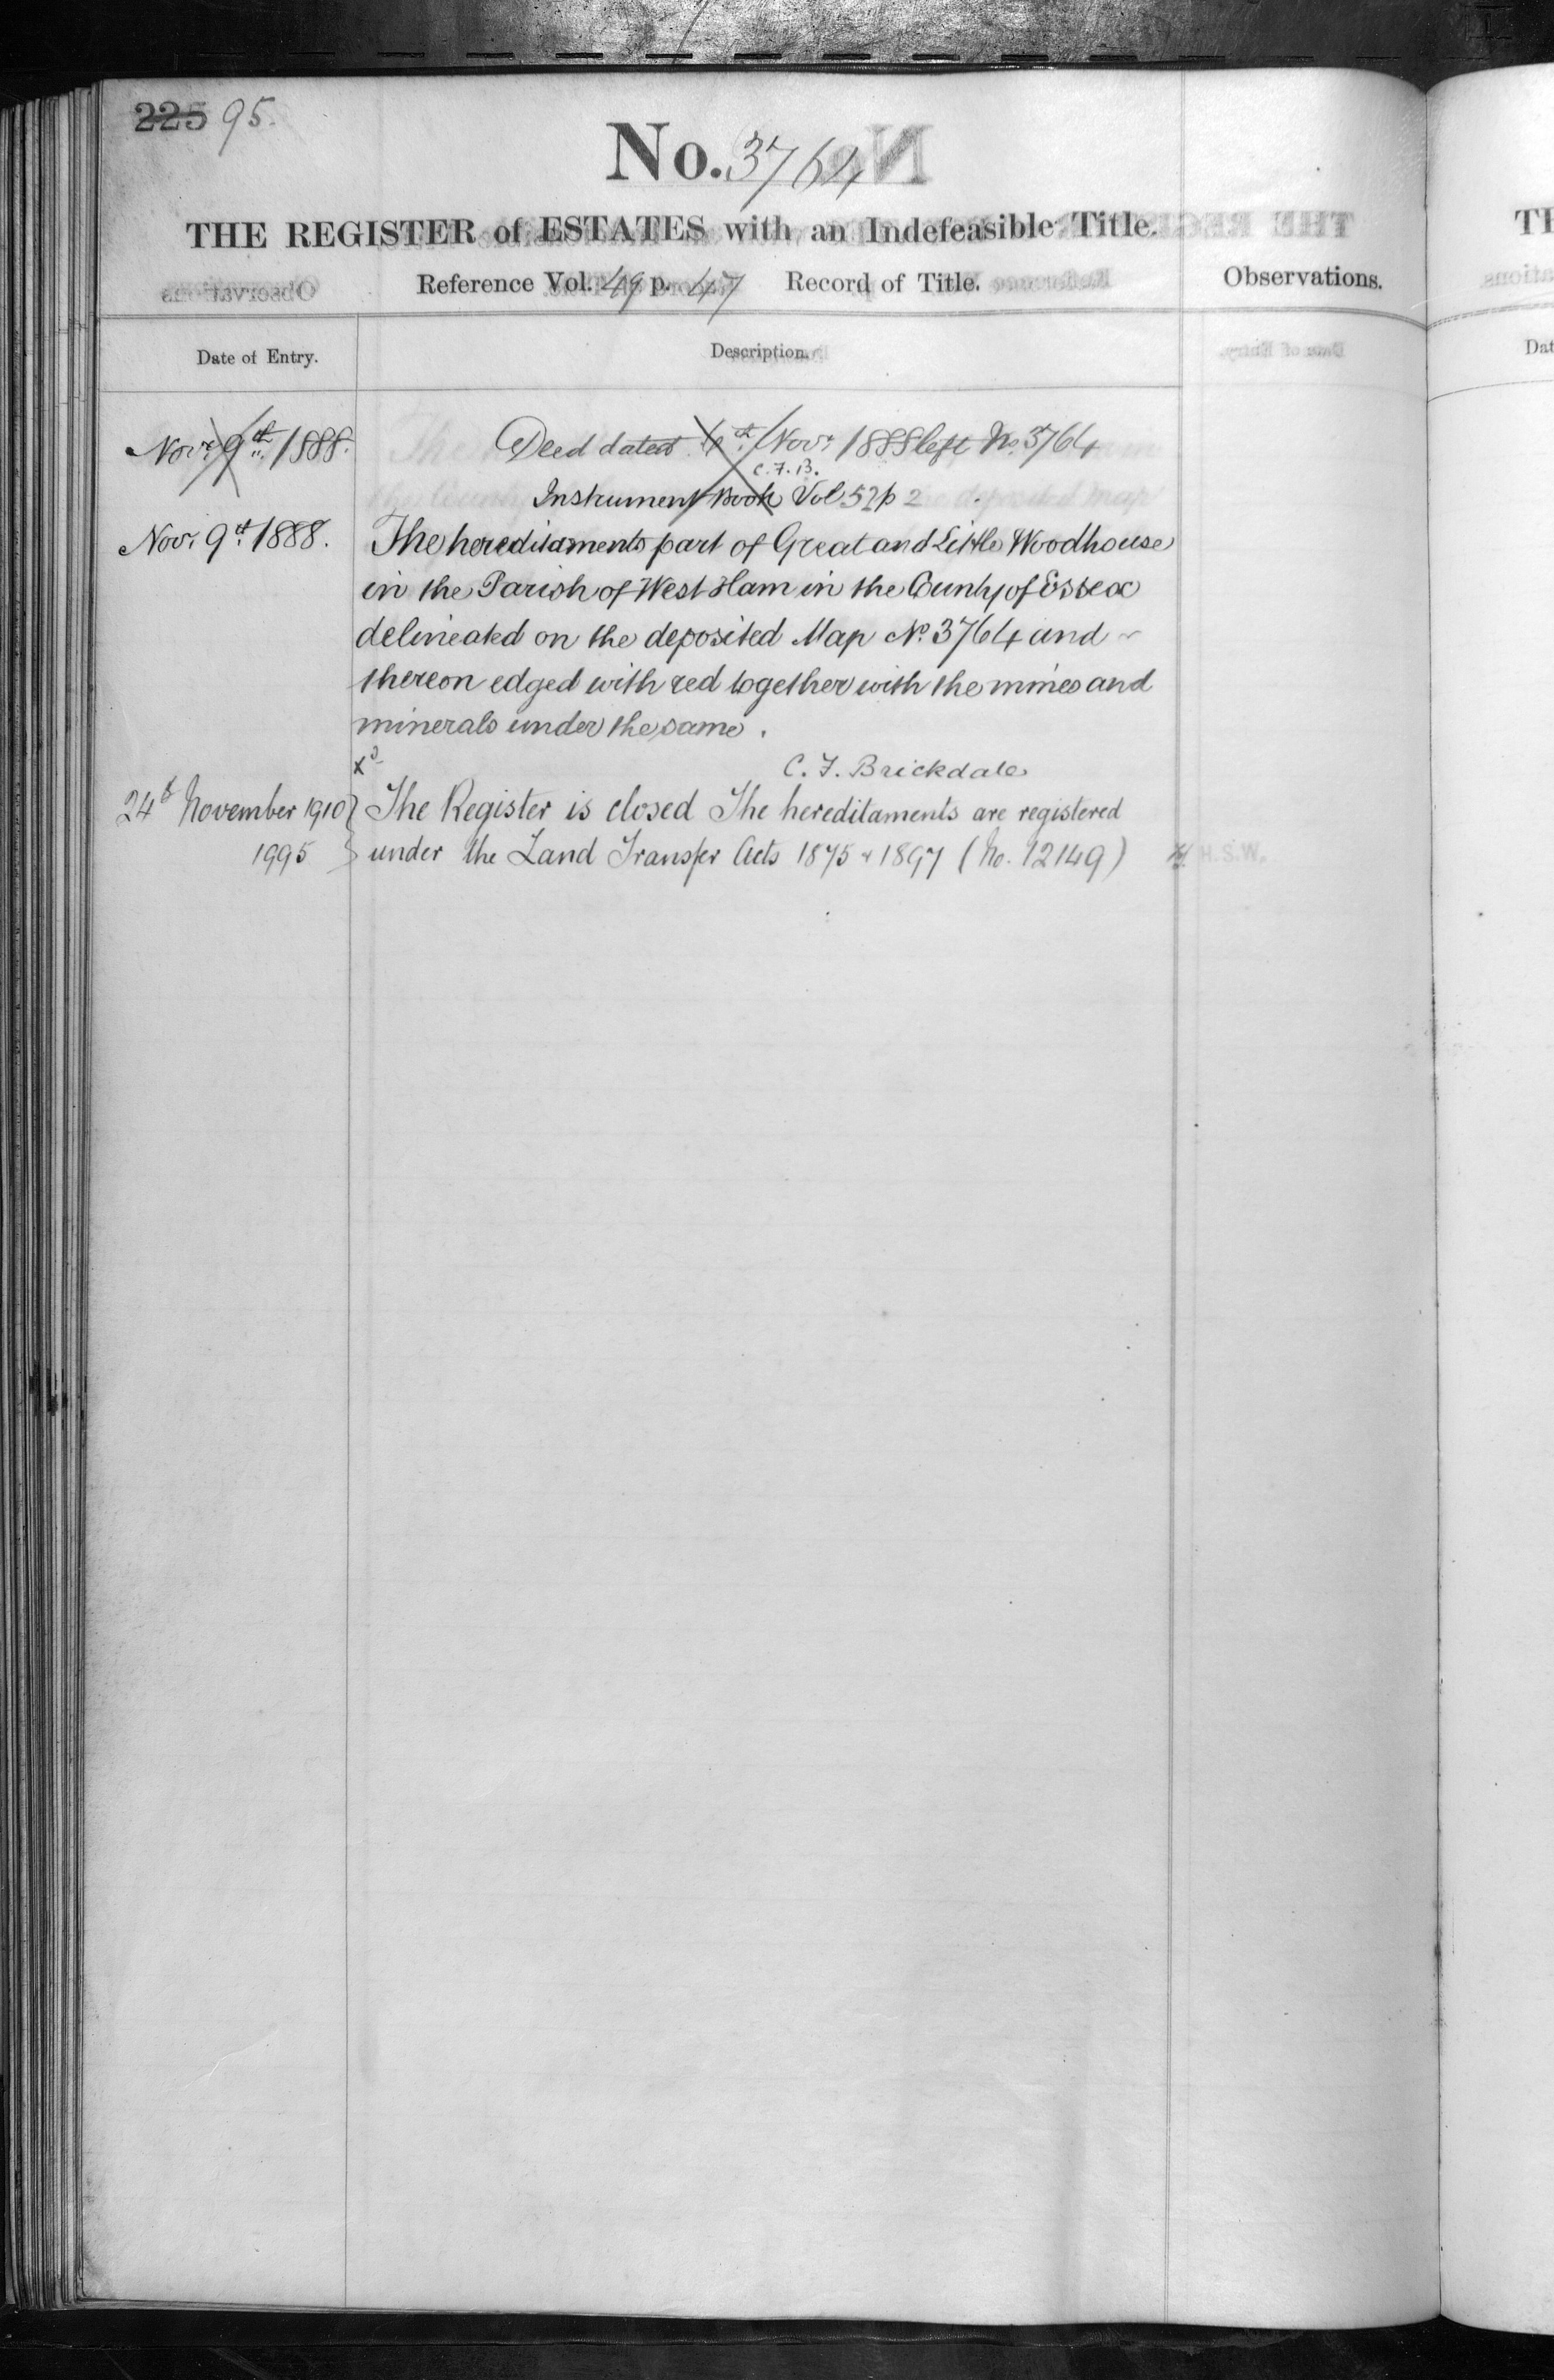 225 95.
No. 3764
THE REGISTER of ESTATES with an Indefeasible Title.
Reference Vol. 49 p. 47 Record of Title.
Observations.
Date of Entry.
Description.
Novr. 9th 1888. Deed dated Novr 1888 left No. 3764
C.F.B.
Instrument Book Vol 52 p 2
Novr 9th 1888. The hereditaments part of Great and Little Woodhouse
in the Parish of West Ham in the County of Essex
delineated on the deposited Map No. 3764 and
thereon edged with red together with the mines and
minerals under the same.
C. F. Brickdale
24th November 1910 } The Register is closed The hereditaments are registered
1995 } under the Land Transfer Acts 1875 & 1897 (No. 12149) H.S.W.